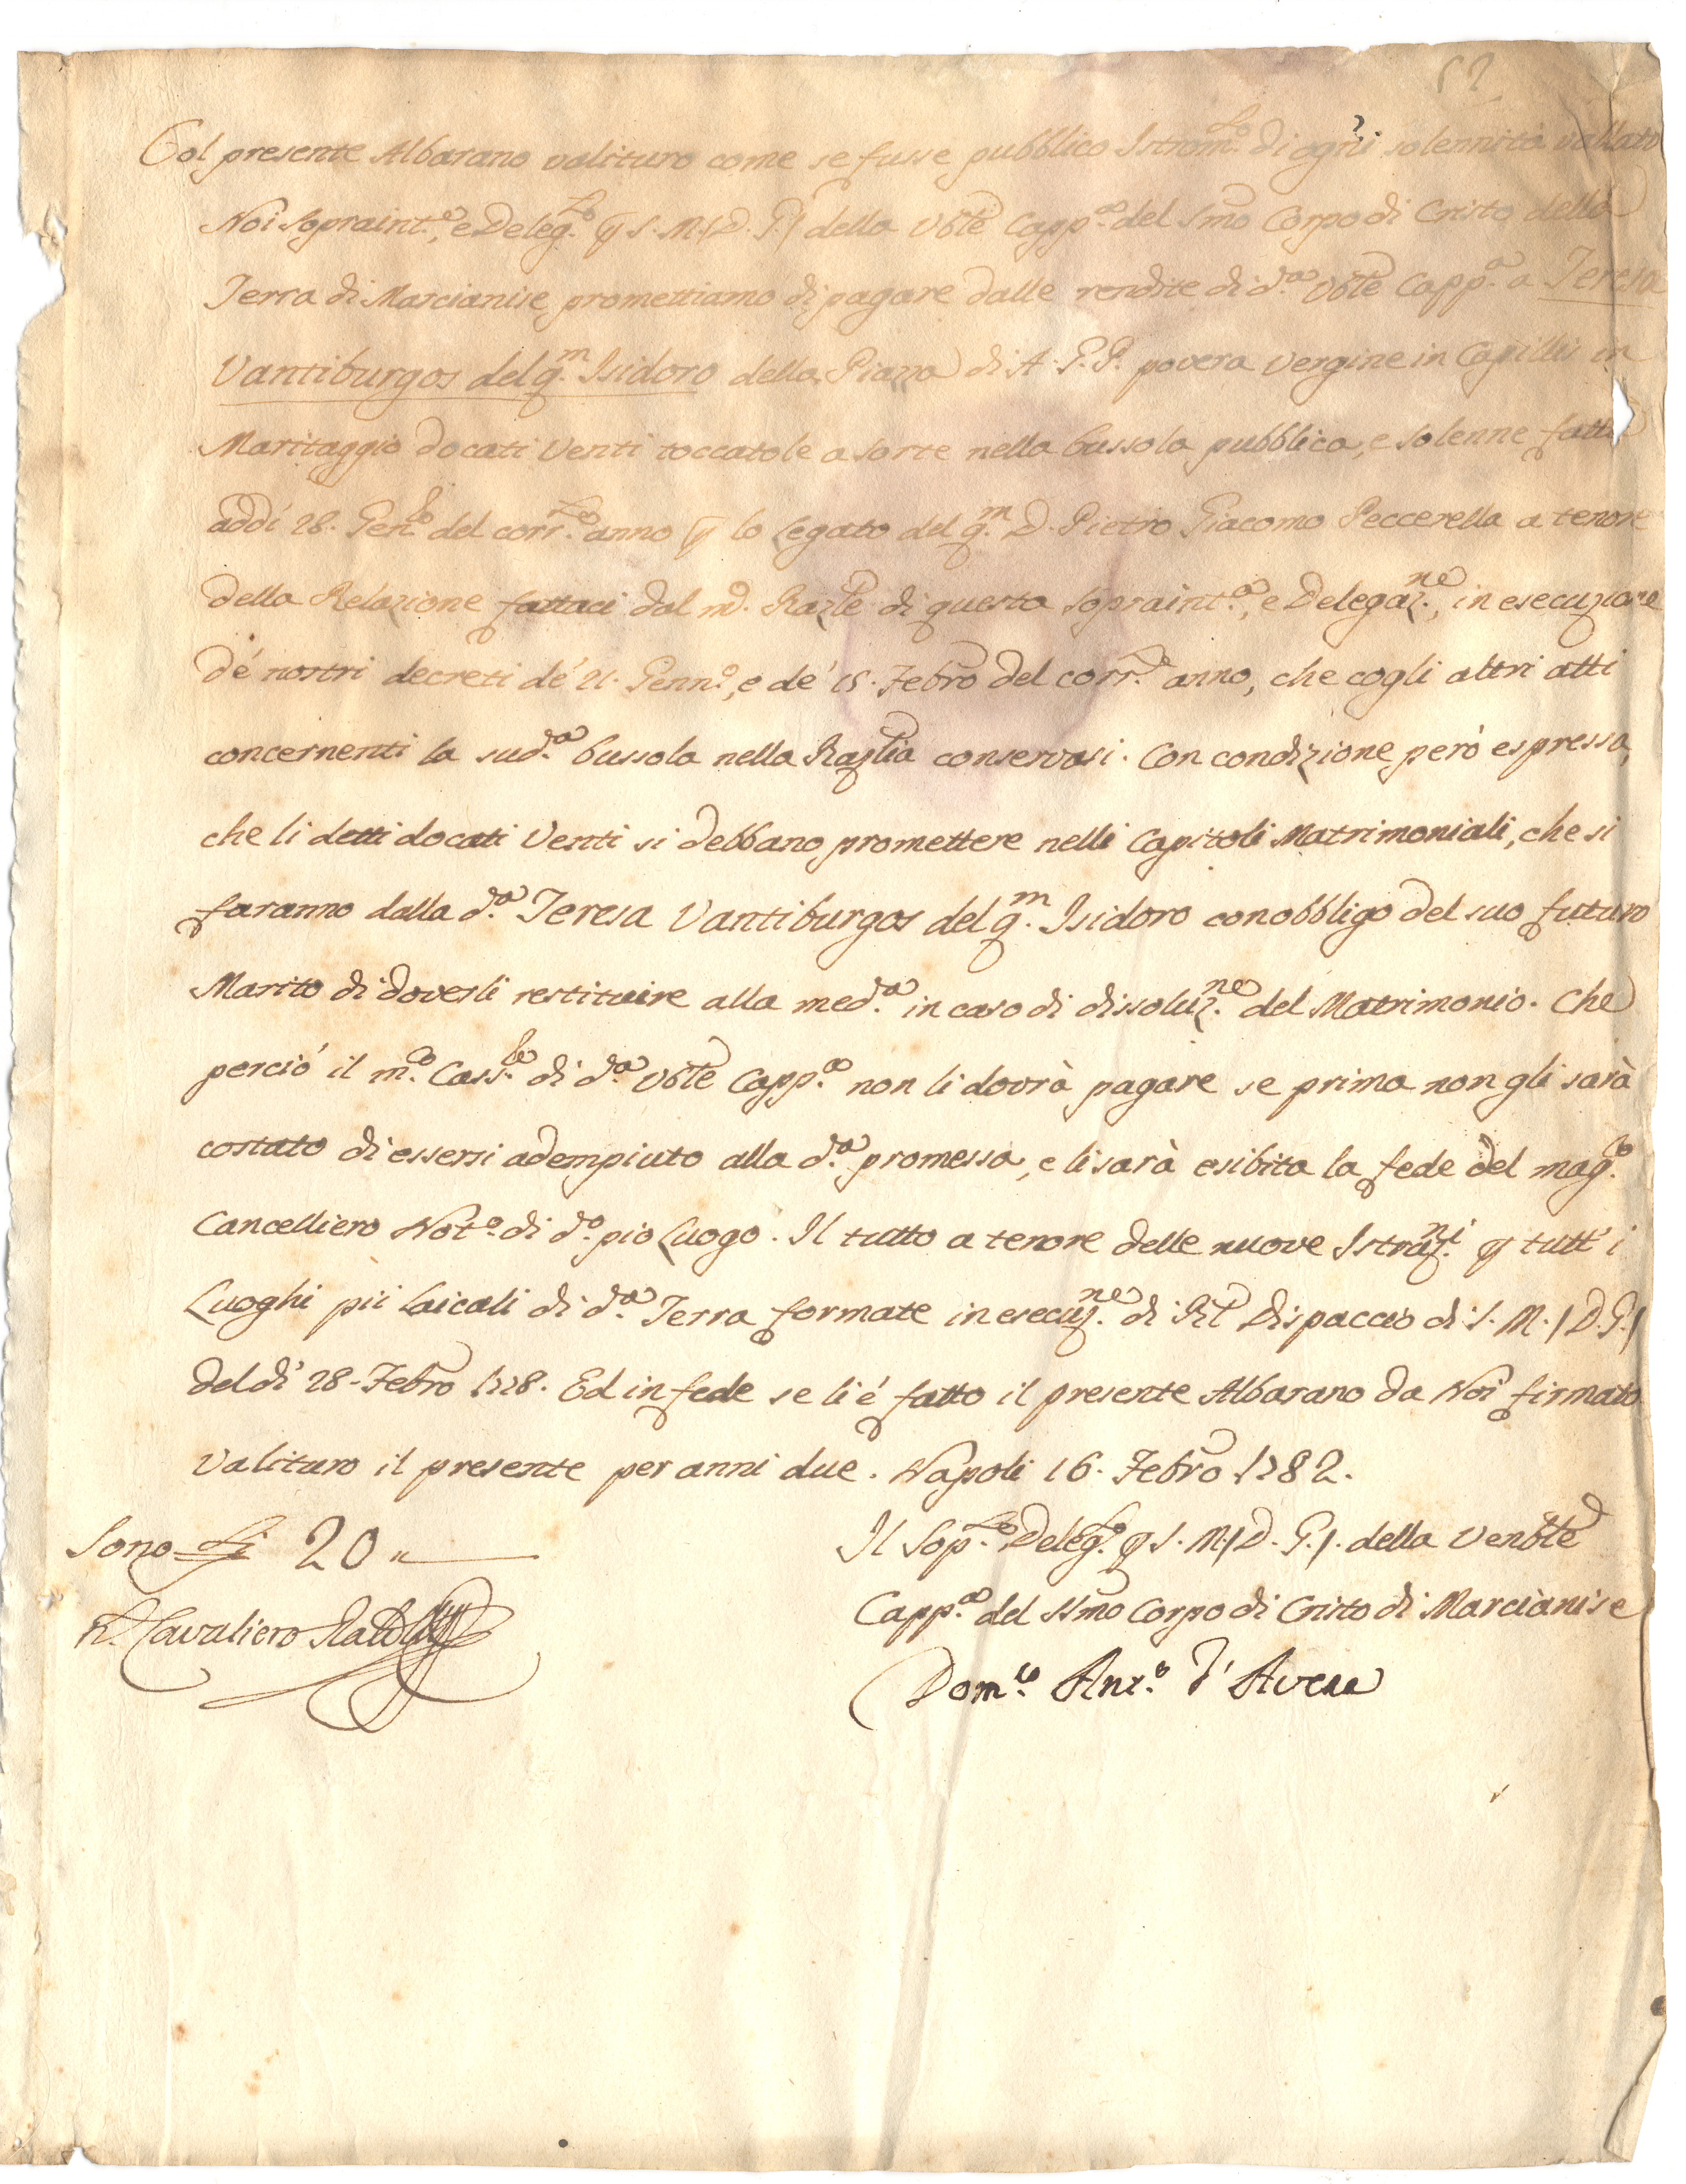 52
Col presente Albarano valituro come se fusse pubblico Istrom.to di ogni solennità vallato
Noi Sopraint.e, e Deleg.to p S. M. (D. G.) della Vble Capp.a del Smo Corpo di Cristo della
Terra di Marcianise promettiamo di pagare dalle rendite di d.a Vble Capp.a a Teresa
Vantiburgos del q.m Isidoro della Piazza di A. G. P. povera Vergine in Capillis in
Maritaggio docati Venti toccatole a sorte nella bussola pubblica, e solenne fatta
addì 28. Gen.ro del corr.te anno p lo Legato del q.m D. Pietro Giacomo Peccerella a tenore
della Relazione fattaci dal m.d. Razle di questa Sopraint.a, e Delegaz.ne, in esecuzione
de' nostri decreti de' 21. Genn.o, e de' 15. Febro del corr.te anno, che cogli altri atti
concernenti la sud.a bussola nella Razlia conservasi. Con condizione però espressa,
che li detti docati Venti si debbano promettere nelli Capitoli Matrimoniali, che si
faranno dalla d.a Teresa Vantiburgos del q.m Isidoro con obbligo del suo futuro
Marito di doverli restituire alla med.a in caso di dissoluz.ne del Matrimonio. Che
perciò il m.co Cass.re di d.a Vble Capp.a non li dovrà pagare se prima non gli sarà
costato di essersi adempiuto alla d.a promessa, e li sarà esibita la fede del mag.co
Cancelliero Not.o di d.o pio Luogo. Il tutto a tenore delle nuove Istruz.ni p tutt' i
Luoghi pii Laicali di d.a Terra formate in esecuz.ne di Rl Dispaccio di S. M. (D. G.)
del dì 28. Febro 1728. Ed in fede se li è fatto il presente Albarano da Noi firmato
valituro il presente per anni due. Napoli 16. Febro 1782.
Sono 20
Il Sop.te Deleg.to p S. M. (D. G.). della Venble
Capp.a del SSmo Corpo di Cristo di Marcianise
Cavaliero
Dom.co Ant.o d'Avena